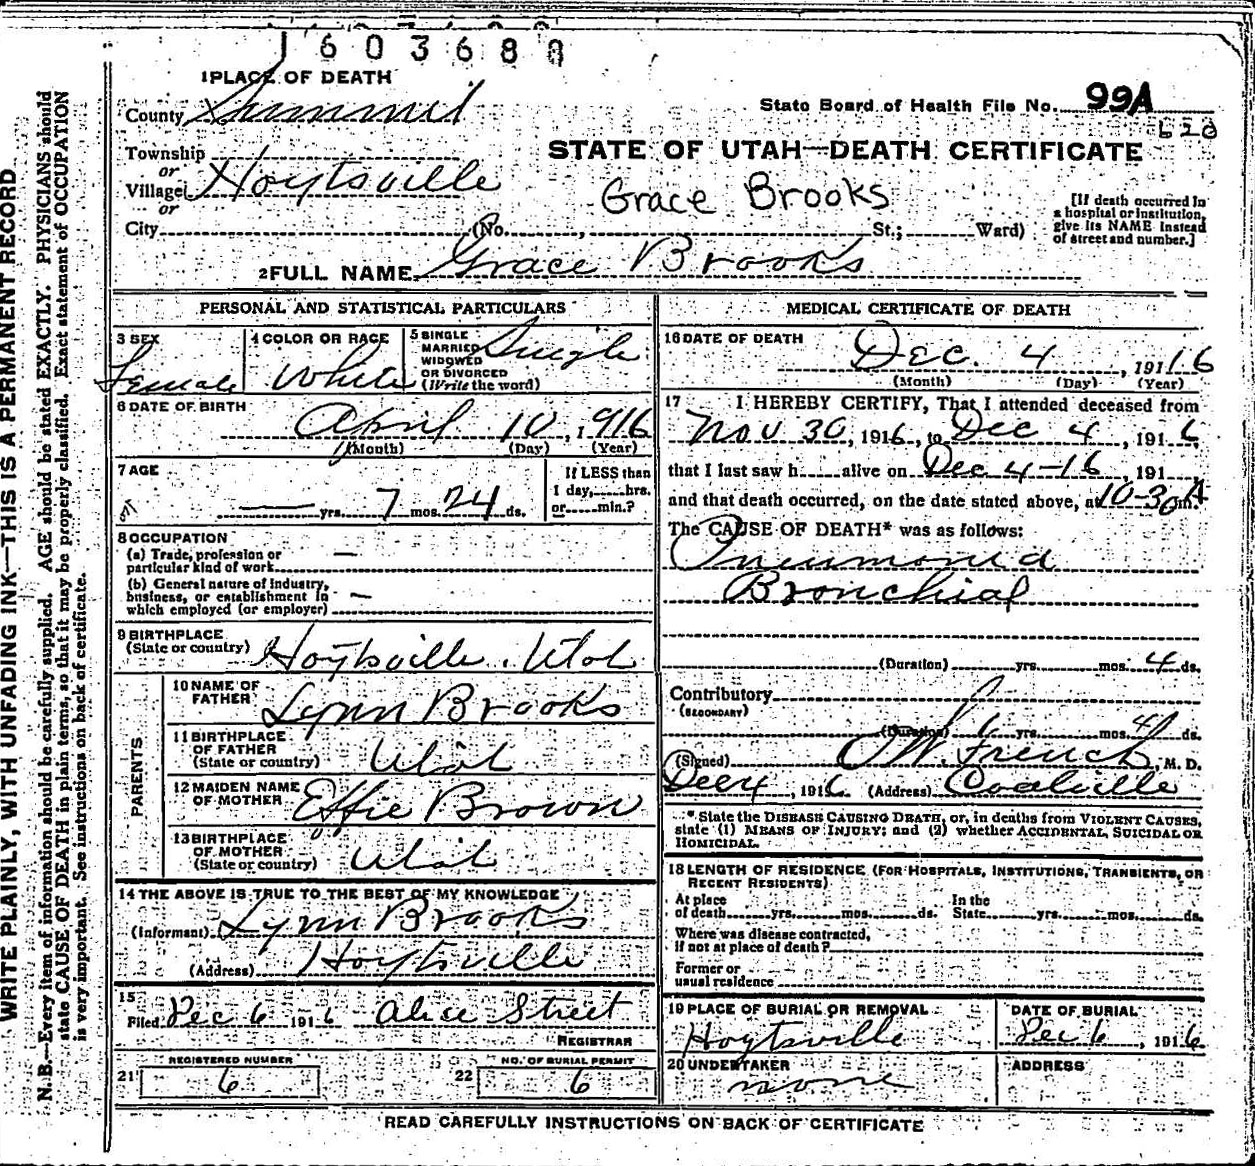 1603688
1 PLACE OF DEATH
County Summit
State Board of Health File No. 99A
620
Township
or
Village Hoytsville
or
City (No. , St.; Ward)
STATE OF UTAH—DEATH CERTIFICATE
Grace Brooks
[If death occurred in
a hospital or institution,
give its NAME instead
of street and number.]
2 FULL NAME Grace Brooks
PERSONAL AND STATISTICAL PARTICULARS
3 SEX
Female
4 COLOR OR RACE
White
5 SINGLE
MARRIED
WIDOWED
OR DIVORCED
(Write the word)
Single
6 DATE OF BIRTH
April 10, 1916
(Month) (Day) (Year)
7 AGE
— yrs. 7 mos. 24 ds.
If LESS than
1 day, hrs.
or min.?
8 OCCUPATION
(a) Trade, profession or
particular kind of work —
(b) General nature of industry,
business, or establishment in
which employed (or employer) —
9 BIRTHPLACE
(State or country) Hoytsville. Utah
PARENTS
10 NAME OF
FATHER Lynn Brooks
11 BIRTHPLACE
OF FATHER
(State or country) Utah
12 MAIDEN NAME
OF MOTHER Effie Brown
13 BIRTHPLACE
OF MOTHER
(State or country) Utah
14 THE ABOVE IS TRUE TO THE BEST OF MY KNOWLEDGE
(Informant) Lynn Brooks
(Address) Hoytsville
15
Filed Dec 6 1916 Alice Street
REGISTRAR
REGISTERED NUMBER
21 6
NO. OF BURIAL PERMIT
22 6
MEDICAL CERTIFICATE OF DEATH
16 DATE OF DEATH
Dec. 4, 191 16
(Month) (Day) (Year)
17 I HEREBY CERTIFY, That I attended deceased from
Nov 30, 1916, to Dec 4, 1916,
that I last saw h alive on Dec 4-16, 191
and that death occurred, on the date stated above, at 10-30 A m.
The CAUSE OF DEATH* was as follows:
Pneumonia
Bronchial
(Duration) yrs. mos. 4 ds.
Contributory
(SECONDARY)
(Duration) yrs. mos. 4 ds.
(Signed) W. French, M. D.
Dec 4, 1916 (Address) Coalville
* State the DISEASE CAUSING DEATH, or, in deaths from VIOLENT CAUSES,
state (1) MEANS OF INJURY; and (2) whether ACCIDENTAL, SUICIDAL OR
HOMICIDAL.
18 LENGTH OF RESIDENCE (FOR HOSPITALS, INSTITUTIONS, TRANSIENTS, OR
RECENT RESIDENTS)
At place
of death yrs. mos. ds.
In the
State yrs. mos. ds.
Where was disease contracted,
if not at place of death?
Former or
usual residence
19 PLACE OF BURIAL OR REMOVAL
Hoytsville
DATE OF BURIAL
Dec 6, 1916
20 UNDERTAKER
none
ADDRESS
READ CAREFULLY INSTRUCTIONS ON BACK OF CERTIFICATE
WRITE PLAINLY, WITH UNFADING INK—THIS IS A PERMANENT RECORD
N. B.—Every item of information should be carefully supplied. AGE should be stated EXACTLY. PHYSICIANS should
state CAUSE OF DEATH in plain terms, so that it may be properly classified. Exact statement of OCCUPATION
is very important. See instructions on back of certificate.